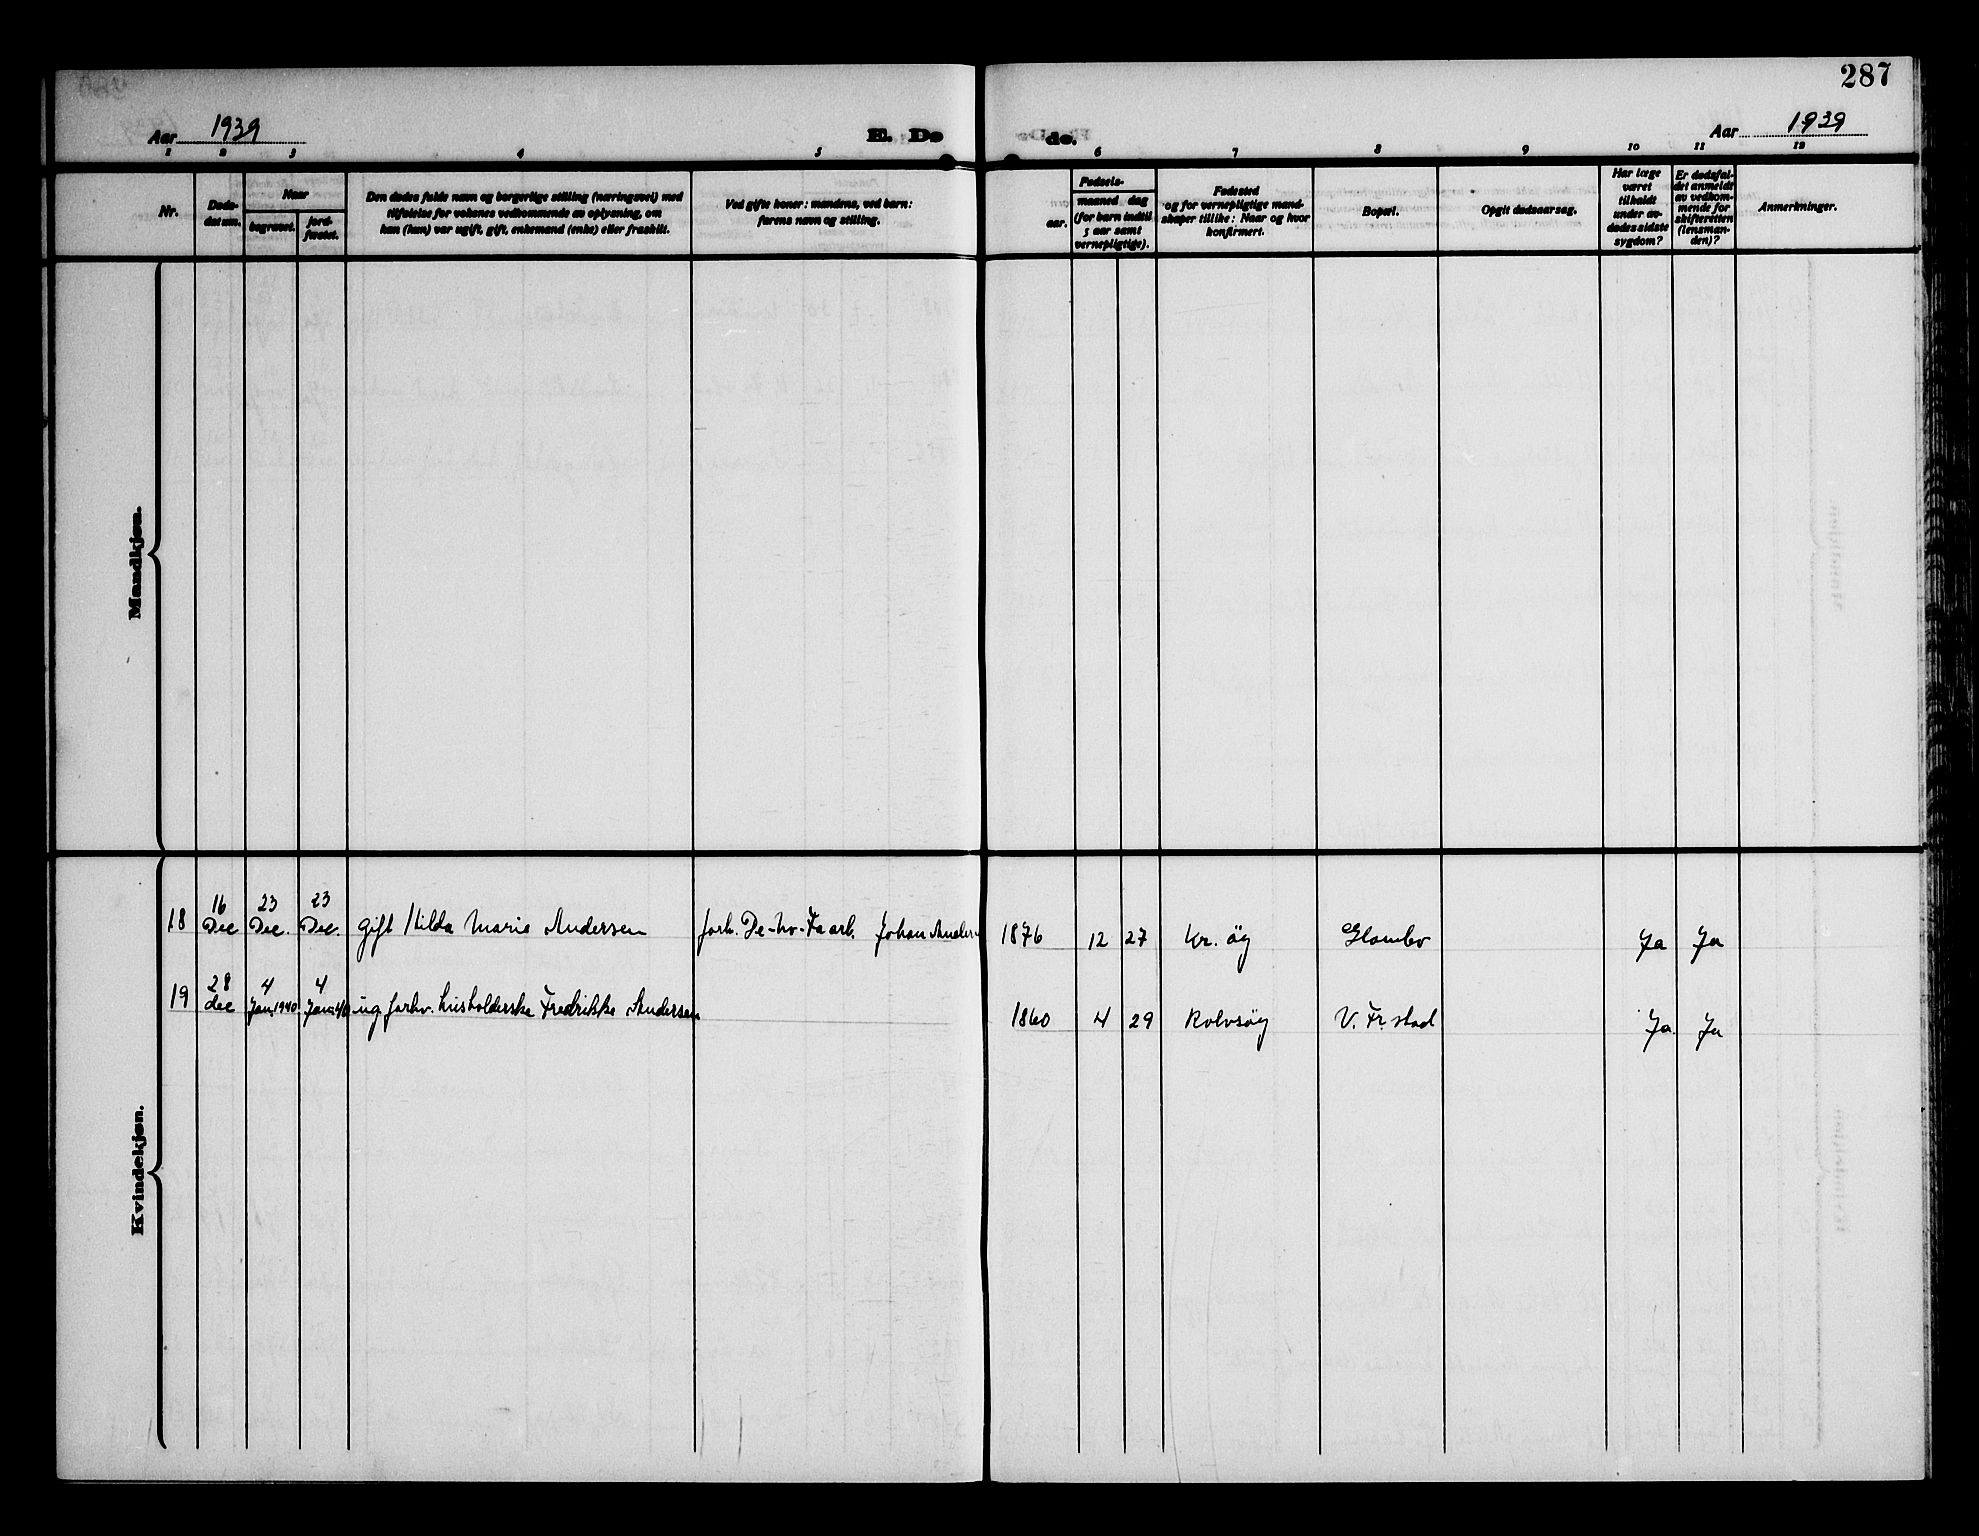 287
Aar 1939
E. Dø
de.
Aar 1939
1 2 3 4 5 6 7 8 9 10 11 12
Nr.
Døds-
datum.
Naar
begravet.
jord-
fæstet.
Den dødes fulde navn og borgerlige stilling (næringsvei) med
tilføielse for voksnes vedkommende av oplysning, om
han (hun) var ugift, gift, enkemand (enke) eller fraskilt.
Ved gifte koner: mandens, ved barn:
farens navn og stilling.
Fødsels-
aar.
maaned dag
(for barn indtil
5 aar samt
vernepligtige).
Fødested
og for vernepligtige mand-
skaper tillike: Naar og hvor
konfirmert.
Bopæl.
Opgit dødsaarsag.
Har læge
været
tilkaldt
under av-
dødes sidste
sygdom?
Er dødsfal-
det anmeldt
av vedkom-
mende for
skifteretten
(lensman-
den)?
Anmerkninger.
Mandkjøn.
Kvindekjøn.
16 23 23
18 Dec Dec. Dec. gift Hilda Marie Andersen forh. De-No-Fa arb. Johan Andersen 1876 12 27 Kr. øy Glombo Ja Ja
28 4 4
19 dec Jan. 1940 Jan. 40 ug. forhv. husholderske Fredrikke Andersen 1860 4 29 Rolvsøy V. Fr.stad Ja Ja